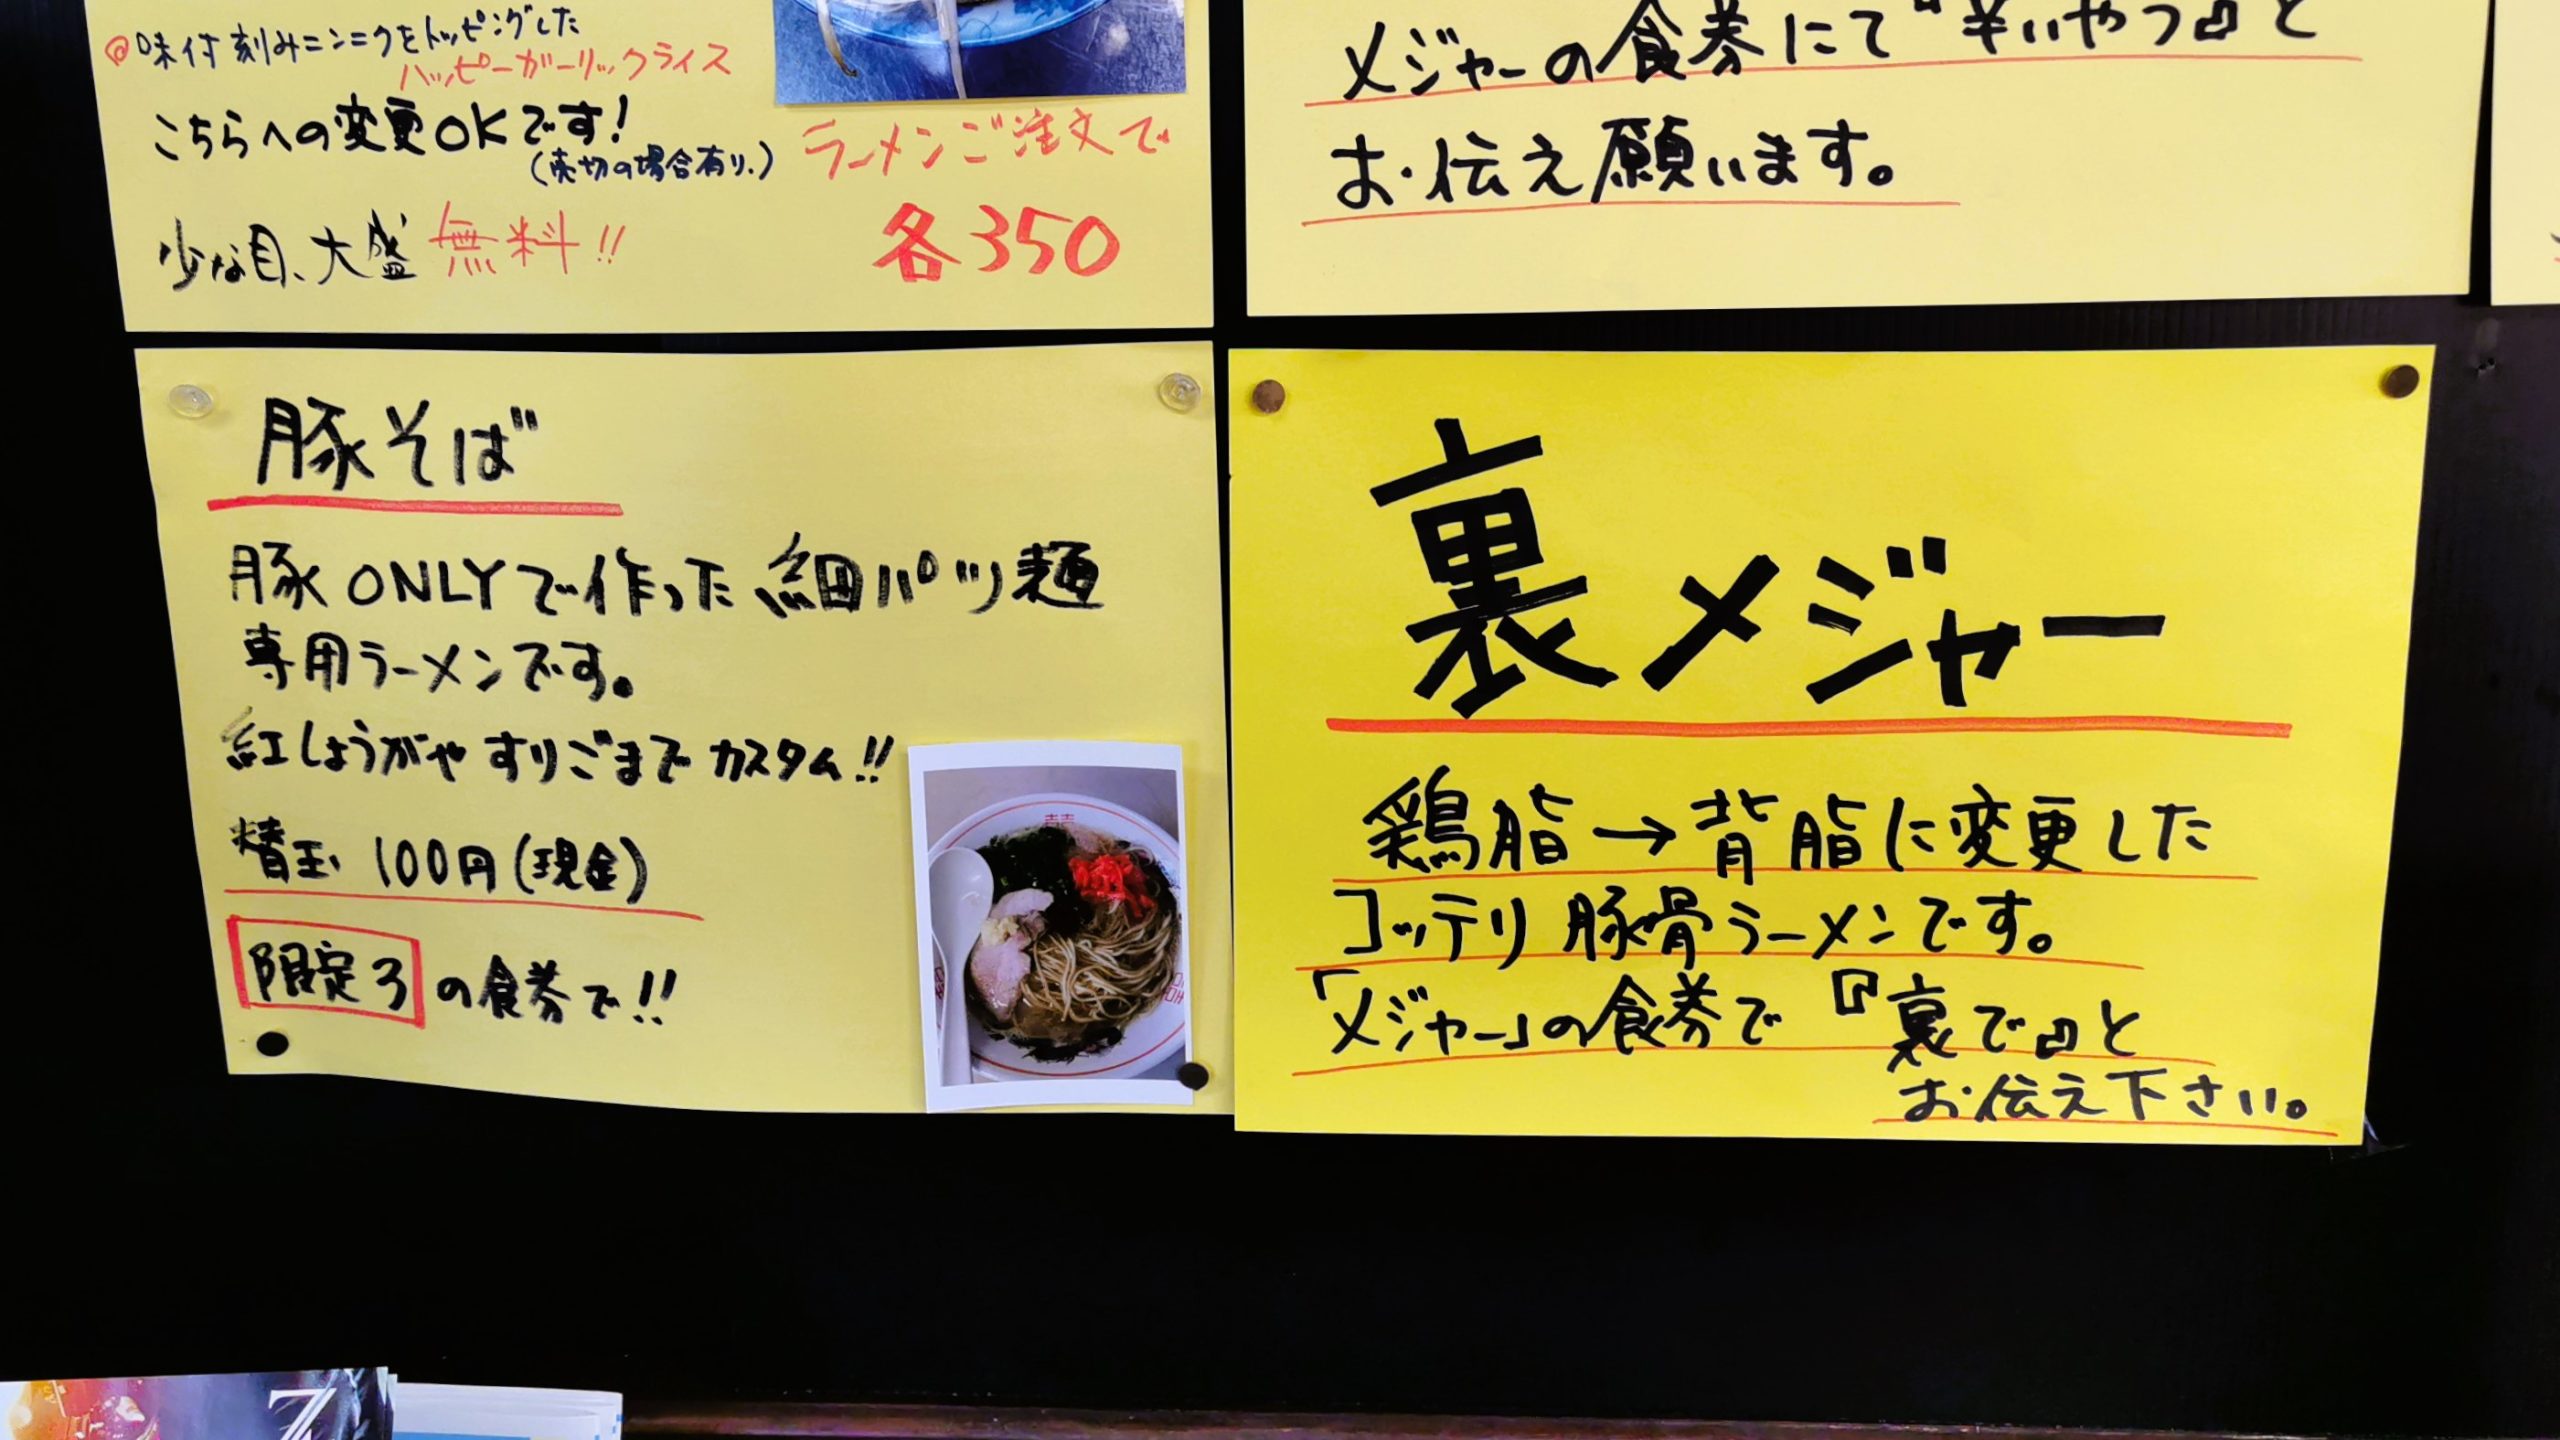 @味付刻みニンニクをトッピングした
ハッピーガーリックライス
こちらへの変更OKです!
(売切の場合有り、)
少な目、大盛 無料!!
ラーメンご注文で
各350
メジャーの食券にて『辛いやつ』と
お伝え願います。
豚そば
豚ONLYで作った細パツ麺
専用ラーメンです。
紅しょうがや すりごままで カスタム!!
替玉 100円(現金)
限定3の食券で!!
裏メジャー
鶏脂→背脂に変更した
コッテリ豚骨ラーメンです。
「メジャー」の食券で『裏で』と
お伝え下さい。